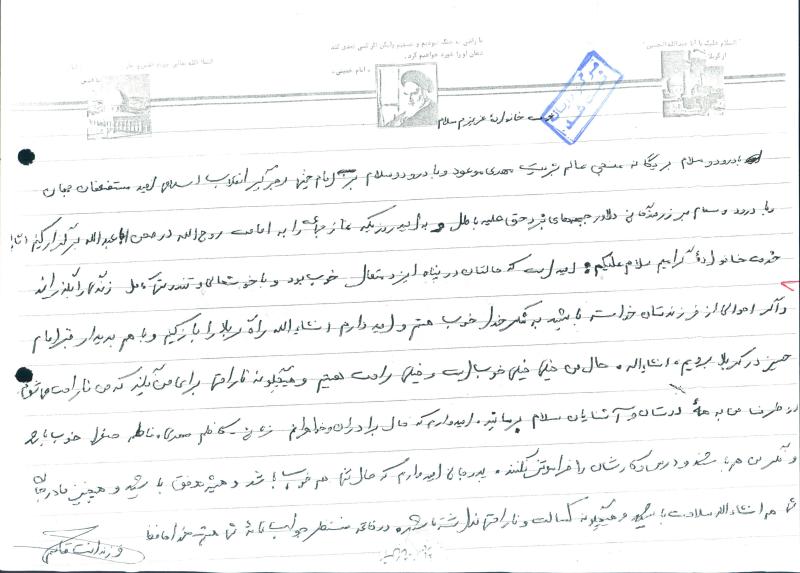 السلام علیک یا ابا عبدالله الحسین
امام خمینی
خدمت خانوادهٔ عزیزم سلام
با درود و سلام بر یگانه منجی عالم بشریت مهدی موعود و با درود و سلام بر امام خمینی رهبر کبیر انقلاب اسلامی امید مستضعفان جهان
و با درود و سلام بر رزمندگان دلاور جبهه‌های نبرد حق علیه باطل و به امید روزیکه نماز را به امامت روح الله در صحن ابا عبدالله برگزار کنیم
خدمت خانوادهٔ گرامیم سلام علیکم: امید است که حالتان در پناه ایزد متعال خوب بود و با خوشحالی و تندرستی کامل زندگی را بگذرانید
و اگر احوالی از فرزندتان خواسته باشید به شکر خدا خوب هستم و امید دارم انشاء الله راه کربلا را باز کنیم و با هم به دیدار قبر امام
حسین در کربلا برویم، انشاءاله. حال من خیلی خیلی خوب است و خیلی راحت هستم و هیچگونه ناراحتی برای من نکنید که من ناراحت می‌شوم
از طرف من به همهٔ دوستان و آشنایان سلام برسانید. امیدوارم که حال برادران و خواهرانم کاظم مهدی، فاطمه صغرا خوب باشد
و نگران من نباشند و درس و کارشان را فراموش نکنند. پدر جان امیدوارم که حال شما هم خوب باشد و همیشه موفق باشید و همچنین مادر جان
شما هم انشاء الله سلامت باشید و هیچگونه کسالت و ناراحتی نداشته باشید. در خاتمه منتظر جواب نامهٔ شما هستم خدا حافظ
فرزندت قاسم